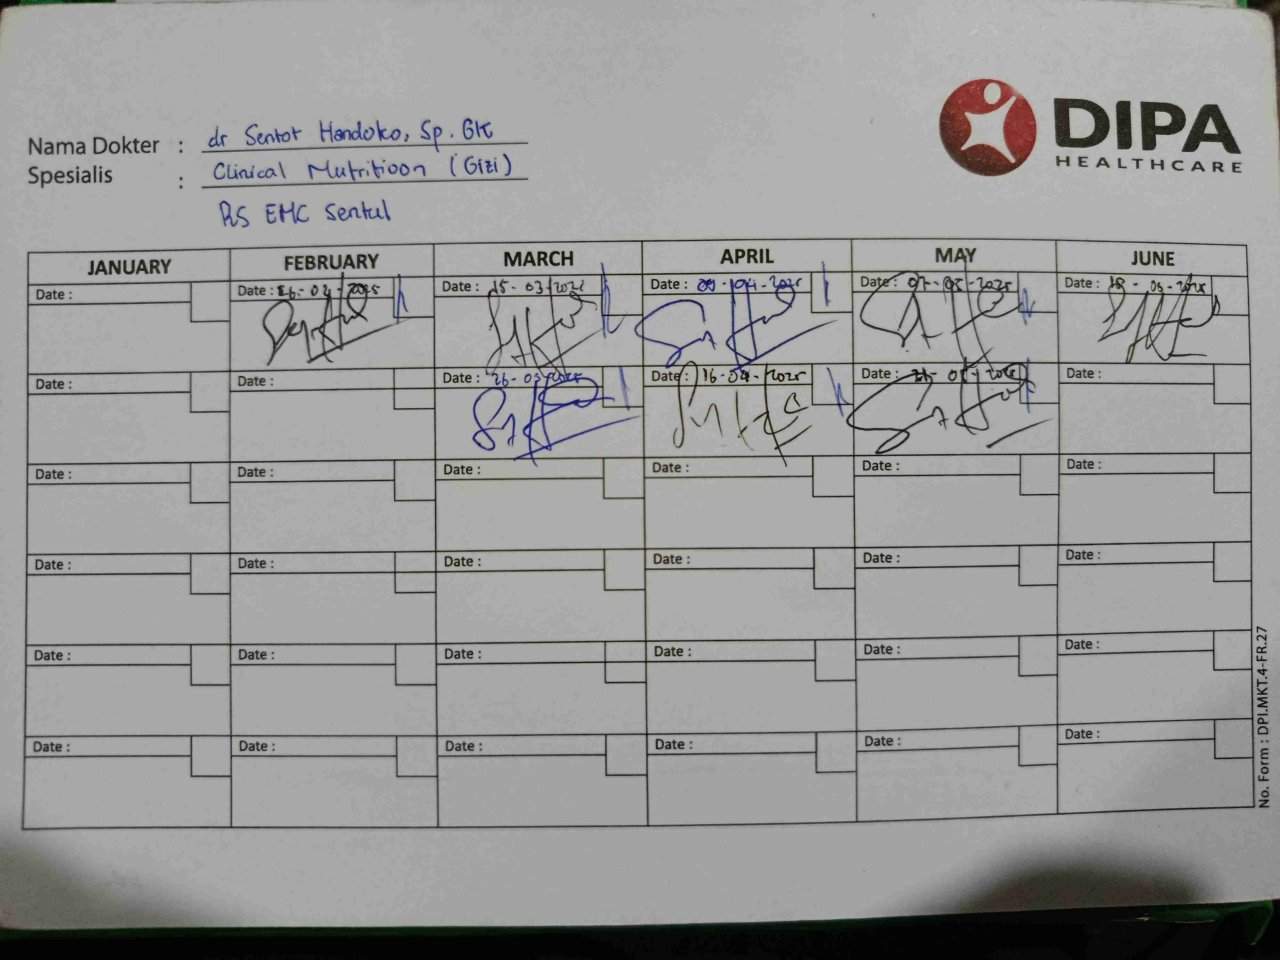 DIPA
HEALTHCARE
Nama Dokter : dr Sentot Handoko, Sp. GK
Spesialis : Clinical Nutritioon (Gizi)
RS EMC Sentul
JANUARY FEBRUARY MARCH APRIL MAY JUNE
Date : Date : 2025 Date : 15-03-2025 Date : 09-04-2025 Date : 07-05-2025 Date : 2025
Date : Date : Date : 26-03-2025 Date : 16-04-2025 Date : 21-05-2025 Date :
Date : Date : Date : Date : Date : Date :
Date : Date : Date : Date : Date : Date :
Date : Date : Date : Date : Date : Date :
Date : Date : Date : Date : Date : Date :
No. Form : DPI.MKT.4-FR.27